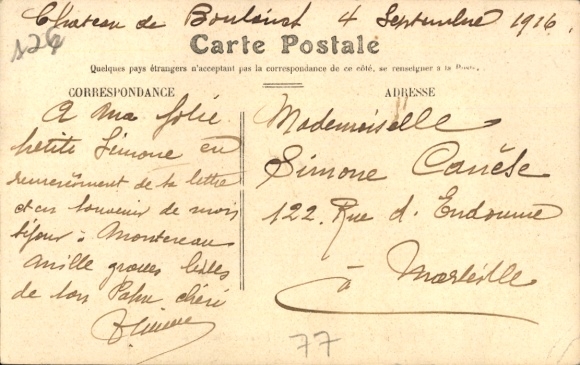 Chateau de 4 Septembre 1916
126
Carte Postale
Quelques pays étrangers n'acceptant pas la correspondance de ce côté, se renseigner à la Poste.
CORRESPONDANCE
A ma jolie
petite Simone en
remerciment de ta lettre
et en souvenir de mon
séjour à Montereau
mille grosses
de ton chéri
ADRESSE
Mademoiselle
Simone
122. Rue d'Endoume
à Marseille
77